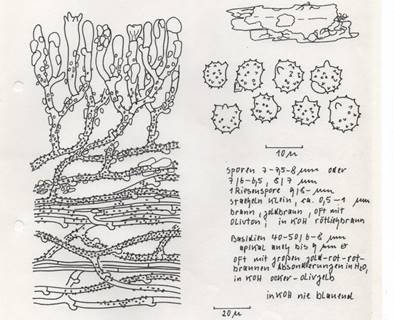 10 µ
Sporen 7-7,5-8 µm oder
7/6-6,5, 8/7 µm
1 Riesenspore 9/8- µm
Stacheln klein, ca. 0,5-1 µm
braun, goldbraun, oft mit
Olivton, in KOH rötlichbraun
Basidien 40-50/6-8 µm
apikal auch bis 9 µm
oft mit großen gold-rot-rot-
braunen Absonderungen in H2O,
in KOH ocker-olivgelb
in KOH nie blauend
20 µ